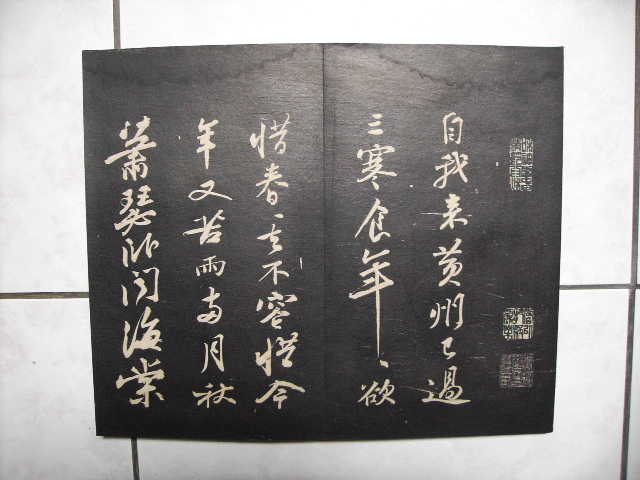 自我来黄州已過
三寒食年〻欲
惜春〻去不容惜今
年又苦雨兩月秋
蕭瑟卧聞海棠